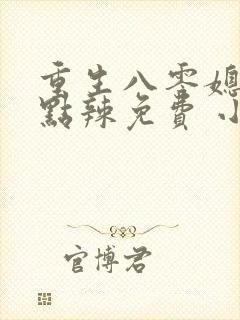 重生八零媳
點辣免費小
官博君